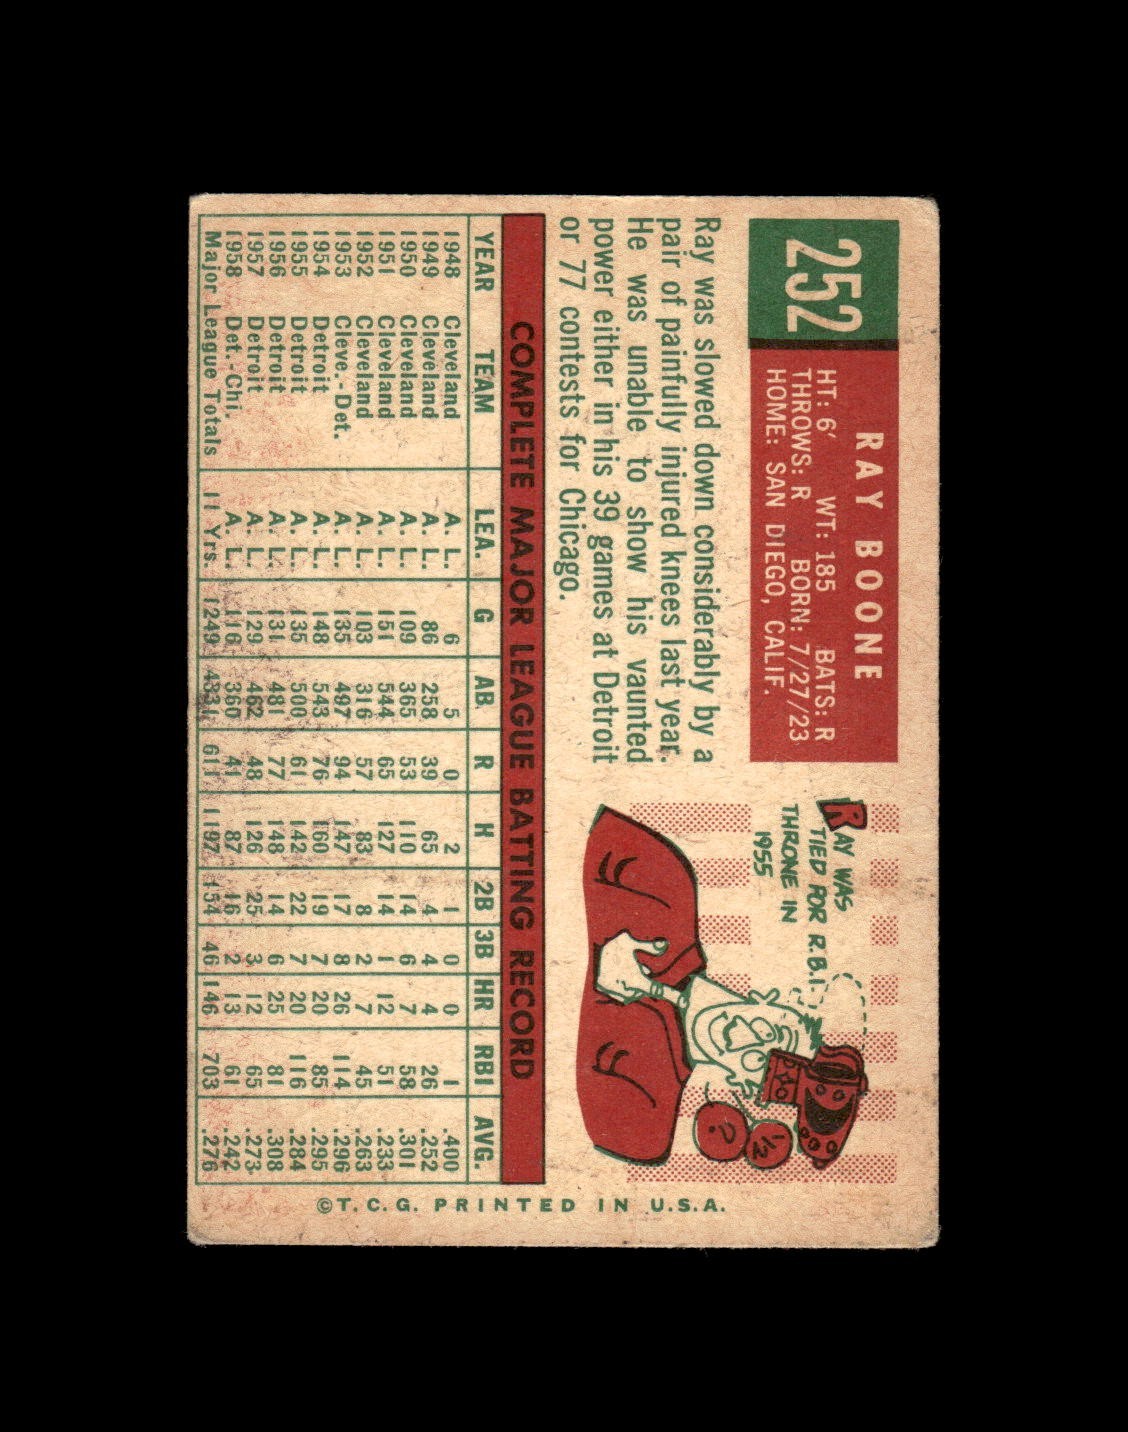 252
RAY BOONE
HT: 6' WT: 185 BATS: R
THROWS: R BORN: 7/27/23
HOME: SAN DIEGO, CALIF.
Ray was slowed down considerably by a
pair of painfully injured knees last year.
He was unable to show his vaunted
power either in his 39 games at Detroit
or 77 contests for Chicago.
RAY WAS
TIED FOR R.B.I.
THRONE IN
1955
½
?
COMPLETE MAJOR LEAGUE BATTING RECORD
YEAR TEAM LEA. G AB R H 2B 3B HR RBI AVG.
1948 Cleveland A. L. 6 5 0 2 1 0 0 1 .400
1949 Cleveland A. L. 86 258 39 65 4 4 4 26 .252
1950 Cleveland A. L. 109 365 53 110 14 6 7 58 .301
1951 Cleveland A. L. 151 544 65 127 14 1 12 51 .233
1952 Cleveland A. L. 103 316 57 83 8 2 7 45 .263
1953 Cleve.-Det. A. L. 135 497 94 147 17 8 26 114 .296
1954 Detroit A. L. 148 543 76 160 19 7 20 85 .295
1955 Detroit A. L. 135 500 61 142 22 7 20 116 .284
1956 Detroit A. L. 131 481 77 148 14 6 25 81 .308
1957 Detroit A. L. 129 462 48 126 25 3 12 65 .273
1958 Det.-Chi. A. L. 116 360 41 87 16 2 13 61 .242
Major League Totals 11 Yrs. 1249 4331 611 1197 154 46 146 703 .276
©T.C.G. PRINTED IN U.S.A.